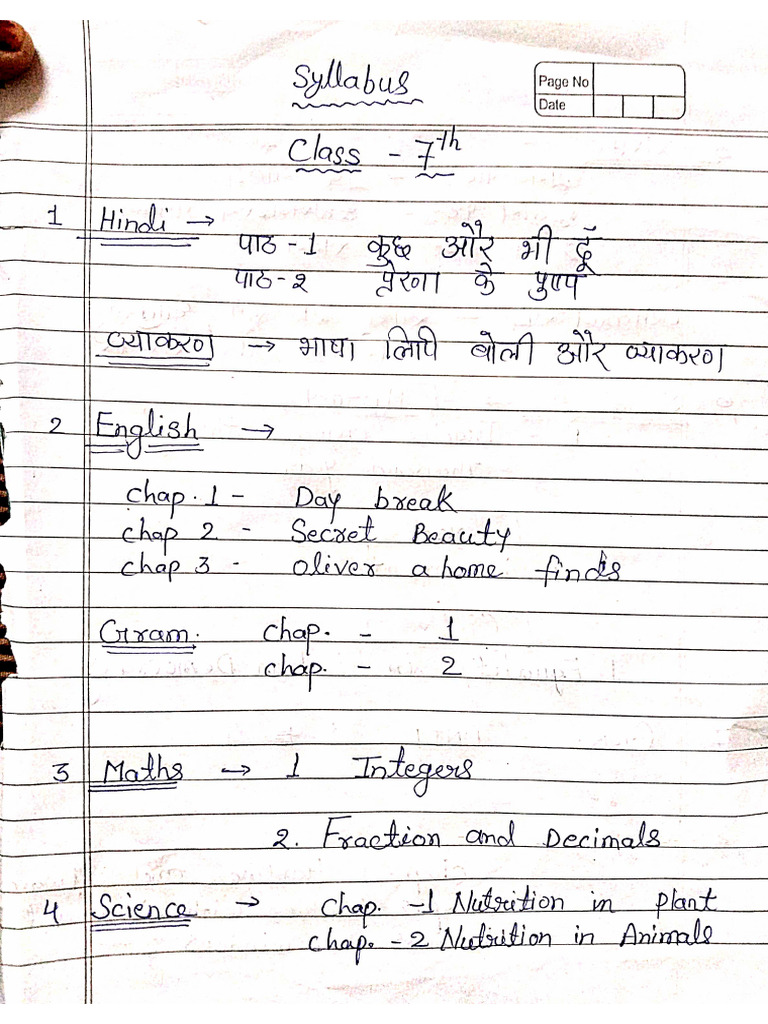 Syllabus
Page No
Date
Class - 7th
1 Hindi →
पाठ - 1 कुछ और भी दूँ
पाठ - २ प्रेरणा के पुष्प
व्याकरण → भाषा लिपि बोली और व्याकरण
2 English →
chap. 1 - Day break
chap 2 - Secret Beauty
chap 3 - oliver a home finds
Gram. chap. - 1
chap. - 2
3 Maths → 1 Integers
2. Fraction and Decimals
4 Science → chap. -1 Nutrition in plant
chap. - 2 Nutrition in Animals